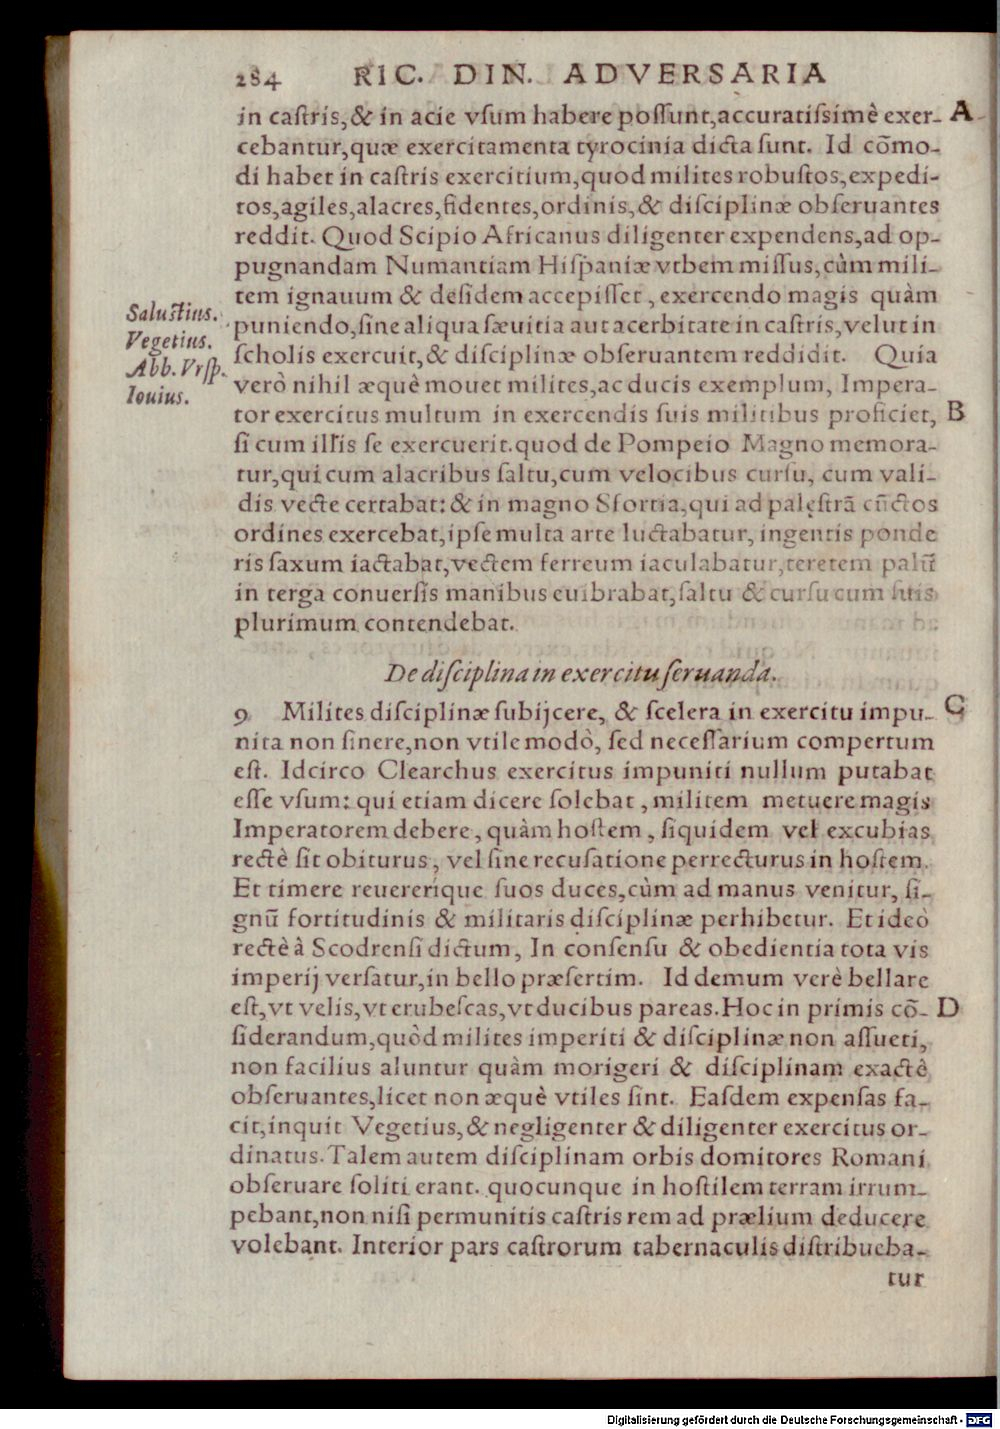 284 RIC. DIN. ADVERSARIA
in caſtris,& in acie vſum habere poſſunt,accuratiſsimè exer- A
cebantur,quæ exercitamenta tyrocinia dicta ſunt. Id cõmo-
di habet in caſtris exercitium,quod milites robuſtos,expedi-
tos,agiles,alacres,fidentes,ordinis,& diſciplinæ obſeruantes
reddit. Quod Scipio Africanus diligenter expendens,ad op-
pugnandam Numantiam Hiſpaniæ vrbem miſſus,cùm mili-
tem ignauum & deſidem accepiſſet, exercendo magis quàm
Saluſtius.
Vegetius.
Abb. Vrſp.
Iouius.
puniendo,ſine aliqua ſæuitia aut acerbitate in caſtris,velut in
ſcholis exercuit,& diſciplinæ obſeruantem reddidit. Quia
verò nihil æquè mouet milites,ac ducis exemplum, Impera-
tor exercitus multum in exercendis ſuis militibus proficiet, B
ſi cum illis ſe exercuerit.quod de Pompeio Magno memora-
tur,qui cum alacribus ſaltu,cum velocibus curſu, cum vali-
dis vecte certabat: & in magno Sfortia,qui ad palęſtrã cũctos
ordines exercebat,ipſe multa arte luctabatur, ingentis ponde
ris ſaxum iactabat,vectem ferreum iaculabatur,teretem palũ
in terga conuerſis manibus euibrabat,ſaltu & curſu cum ſuis
plurimum contendebat.
De diſciplina in exercitu ſeruanda.
9 Milites diſciplinæ ſubijcere, & ſcelera in exercitu impu- C
nita non ſinere,non vtile modò, ſed neceſſarium compertum
eſt. Idcirco Clearchus exercitus impuniti nullum putabat
eſſe vſum: qui etiam dicere ſolebat, militem metuere magis
Imperatorem debere, quàm hoſtem, ſiquidem vel excubias
rectè ſit obiturus, vel ſine recuſatione perrecturus in hoſtem.
Et timere reuererique ſuos duces,cùm ad manus venitur, ſi-
gnũ fortitudinis & militaris diſciplinæ perhibetur. Et ideò
rectè à Scodrenſi dictum, In conſenſu & obedientia tota vis
imperij verſatur,in bello præſertim. Id demum verè bellare
eſt,vt velis,vt erubeſcas,vt ducibus pareas.Hoc in primis cõ- D
ſiderandum,quòd milites imperiti & diſciplinæ non aſſueti,
non facilius aluntur quàm morigeri & diſciplinam exactè
obſeruantes,licet non æquè vtiles ſint. Eaſdem expenſas fa-
cit,inquit Vegetius,& negligenter & diligenter exercitus or-
dinatus.Talem autem diſciplinam orbis domitores Romani
obſeruare ſoliti erant. quocunque in hoſtilem terram irrum-
pebant,non niſi permunitis caſtris rem ad prælium deducere
volebant. Interior pars caſtrorum tabernaculis diſtribueba-
tur
Digitalisierung gefördert durch die Deutsche Forschungsgemeinschaft - DFG